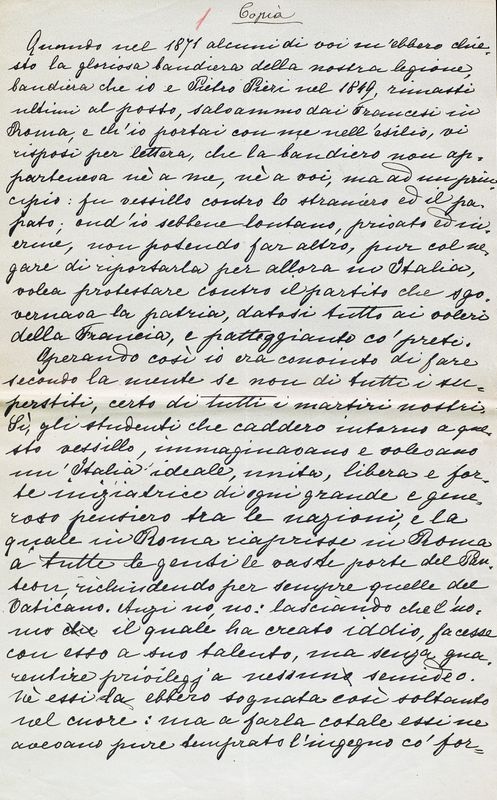 1 Copia
Quando nel 1871 alcuni di voi m'ebbero chie-
sto la gloriosa bandiera della nostra legione,
bandiera che io e Pietro Pieri nel 1849, rimasti
ultimi al posto, salvammo dai Francesi in
Roma, e ch'io portai con me nell'esilio, vi
risposi per lettera, che la bandiera non ap-
parteneva nè a me, nè a voi, ma ad un prin
cipio: fu vessillo contro lo straniero ed il pa-
pato; ond'io sebbene lontano, privato ed i-
nerme, non potendo far altro, pur col ne-
gare di riportarla per allora in Italia,
volea protestare contro il partito che sgo-
vernava la patria, datosi tutto ai voleri
della Francia, e patteggiante co' preti.
Operando così io era convinto di fare
secondo la mente se non di tutti i su-
perstiti, certo di tutti i martiri nostri.
Sì, gli studenti che caddero intorno a que-
sto vessillo, immaginavano e volevano
un'Italia ideale, unita, libera e for-
te iniziatrice di ogni grande e gene-
roso pensiero tra le nazioni, e la
quale in Roma riaprisse in Roma
a tutte le genti le vaste porte del Pan-
teon, richiudendo per sempre quelle del
Vaticano. Anzi no, no: lasciando che l'uo-
mo il quale ha creato iddio, facesse
con esso a suo talento, ma senza gua-
rentire privilegj a nessuno semideo.
Nè essi la ebbero sognata così soltanto
nel cuore: ma a farla cotale essi ne
aveano pure temprato l'ingegno co' for-